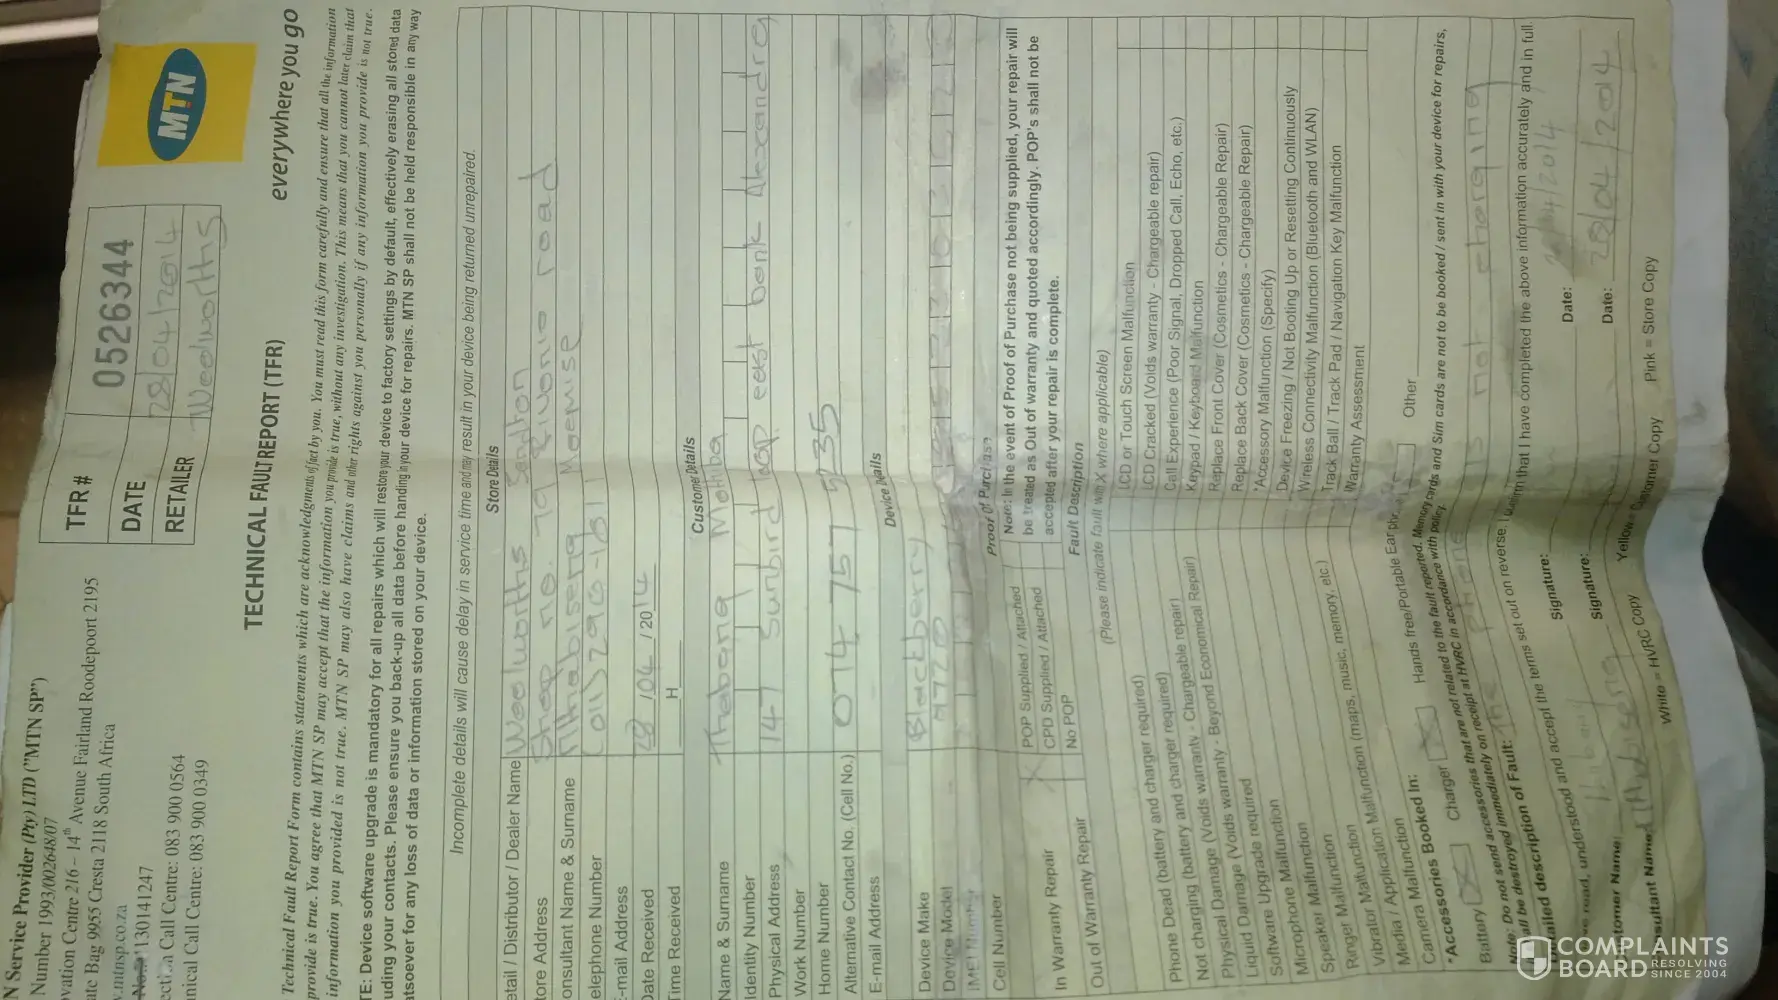 MTN
everywhere you go
TFR # 0526344
DATE 28/04/2014
RETAILER Woolworths
N Service Provider (Pty) LTD ("MTN SP")
Number 1993/002648/07
vation Centre 216 – 14th Avenue Fairland Roodepoort 2195
ate Bag 9955 Cresta 2118 South Africa
w.mtnsp.co.za
130141247
Call Centre: 083 900 0564
nical Call Centre: 083 900 0349
TECHNICAL FAULT REPORT (TFR)
Technical Fault Report Form contains statements which are acknowledgments of fact by you. You must read this form carefully and ensure that all the information
provide is true. You agree that MTN SP may accept that the information you provide is true, without any investigation. This means that you cannot later claim that
information you provided is not true. MTN SP may also have claims and other rights against you personally if any information you provide is not true.
TE: Device software upgrade is mandatory for all repairs which will restore your device to factory settings by default, effectively erasing all stored data
uding your contacts. Please ensure you back-up all data before handing in your device for repairs. MTN SP shall not be held responsible in any way
atsoever for any loss of data or information stored on your device.
Incomplete details will cause delay in service time and may result in your device being returned unrepaired.
Store Details
etail / Distributor / Dealer Name Woolworths Sandton
tore Address Shop no. 79 Rivonia road
onsultant Name & Surname Nthabiseng Moemise
elephone Number
E-mail Address
Date Received 28 /04 / 2014
Time Received H
Customer Details
Name & Surname Thabang
Identity Number
Physical Address 147 Sunbird east bank Alexandra
Work Number
Home Number
Alternative Contact No. (Cell No.) 074 757 5235
E-mail Address
Device Details
Device Make Blackberry
Device Model 9720
IMEI Number
Cell Number
Proof Of Purchase
In Warranty Repair X
Out of Warranty Repair
POP Supplied / Attached
CPD Supplied / Attached
No POP
Note: In the event of Proof of Purchase not being supplied, your repair will
be treated as Out of warranty and quoted accordingly. POP's shall not be
accepted after your repair is complete.
Fault Description
(Please indicate fault with X where applicable)
Phone Dead (battery and charger required)
Not charging (battery and charger required)
Physical Damage (Voids warranty - Chargeable repair)
Liquid Damage (Voids warranty - Beyond Economical Repair)
Software Upgrade required
Microphone Malfunction
Speaker Malfunction
Ringer Malfunction
Vibrator Malfunction
Media / Application Malfunction (maps, music, memory, etc.)
Camera Malfunction
LCD or Touch Screen Malfunction
LCD Cracked (Voids warranty - Chargeable repair)
Call Experience (Poor Signal, Dropped Call, Echo, etc.)
Keypad / Keyboard Malfunction
Replace Front Cover (Cosmetics - Chargeable Repair)
Replace Back Cover (Cosmetics - Chargeable Repair)
*Accessory Malfunction (Specify)
Device Freezing / Not Booting Up or Resetting Continuously
Wireless Connectivity Malfunction (Bluetooth and WLAN)
Track Ball / Track Pad / Navigation Key Malfunction
Warranty Assessment
*Accessories Booked In:
Battery X Charger Hands free/Portable Earphone Other
Note: Do not send accessories that are not related to the fault reported. Memory cards and Sim cards are not to be booked / sent in with your device for repairs,
all be destroyed immediately on receipt at HVRC in accordance with policy.
tailed description of Fault: The phone is not charging
ve read, understood and accept the terms set out on reverse. I confirm that I have completed the above information accurately and in full.
stomer Name: Signature: Date:
nsultant Name: Nthabiseng Signature: Date: 28/04/2014
White = HVRC Copy Yellow = Customer Copy Pink = Store Copy
COMPLAINTS
BOARD RESOLVING
SINCE 2004